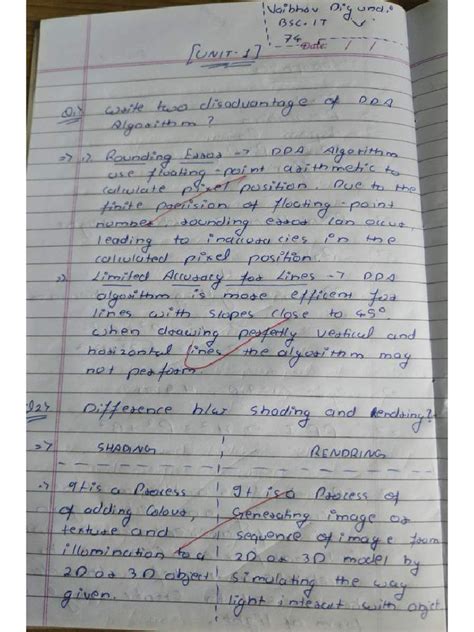 Vaibhav Digundi
BSC-IT
74
Date / /
[UNIT-1]
Q.1) Write two disadvantage of DDA
Algorithm?
=> 1) Rounding Error -> DDA Algorithm
use floating-point arithmetic to
calculate pixel position. Due to the
finite precision of floating-point
number rounding error can occur,
leading to inaccuracies in the
calculated pixel position.
2) Limited Accuracy for Lines -> DDA
algorithm is more efficent for
lines with slopes close to 45°
when drawing perfertly vertical and
horizontal lines the algorithm may
not perform.
Q2) Difference b/w shading and Rendring?
=> SHADING RENDRING
1) It is a Process It is a Process of
of adding Colour, Generating image or
texture and sequence of image from
illumination to a 2D or 3D model by
2D or 3D object simulating the way
given. light interect with object